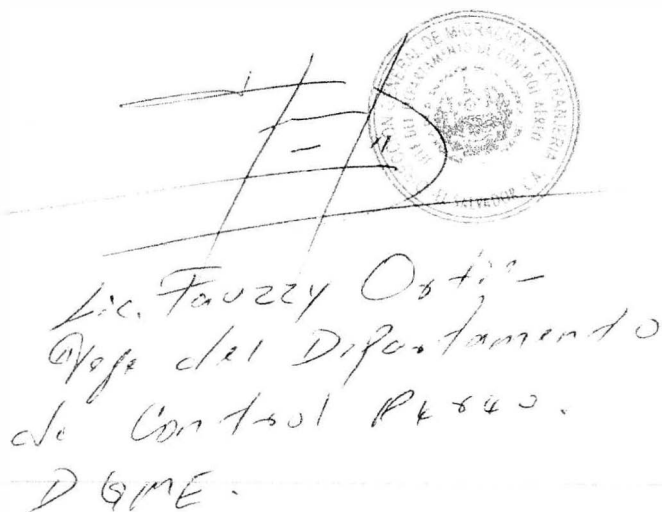 DIRECCIÓN GENERAL DE MIGRACIÓN Y EXTRANJERÍA
JEFE DEL DEPARTAMENTO DE CONTROL AÉREO
EL SALVADOR, C.A.
Lic. Fauzzy Ortiz
Jefe del Departamento
de Control Aereo.
DGME.